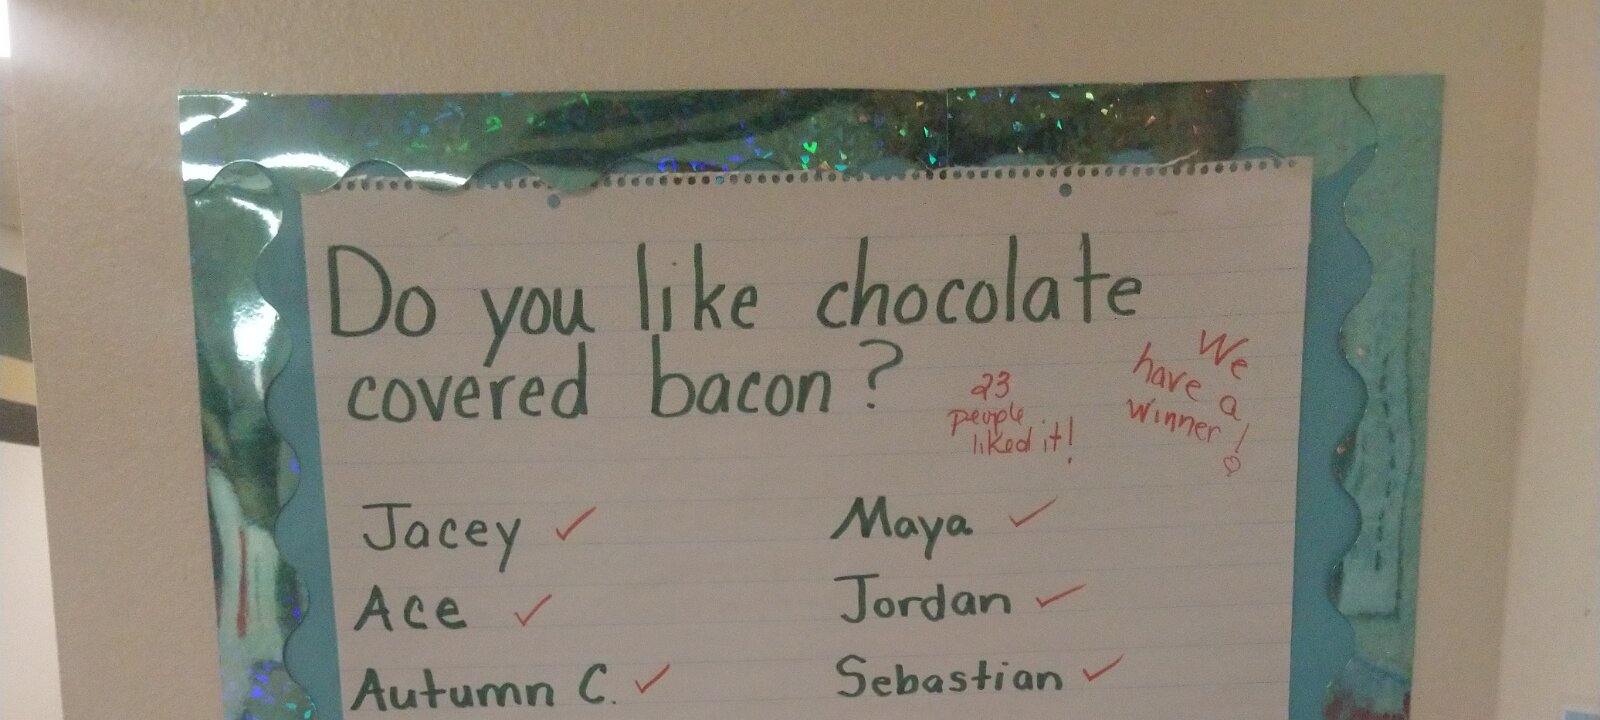 Do you like chocolate
covered bacon?
23
people
liked it!
We
have a
winner!
Jacey ✓
Maya ✓
Ace ✓
Jordan ✓
Autumn C. ✓
Sebastian ✓